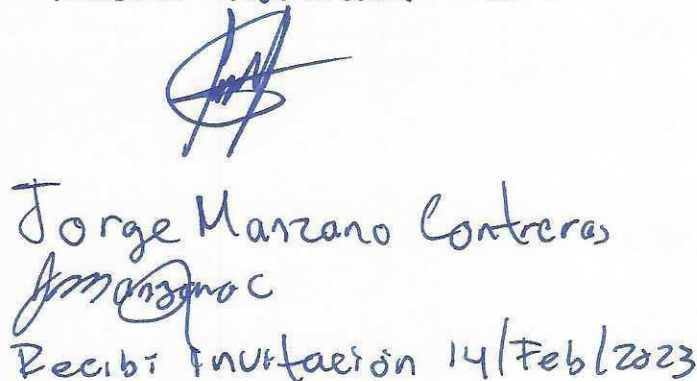 Jorge Manzano Contreras
JManzanoC
Recibi invitación 14/Feb/2023